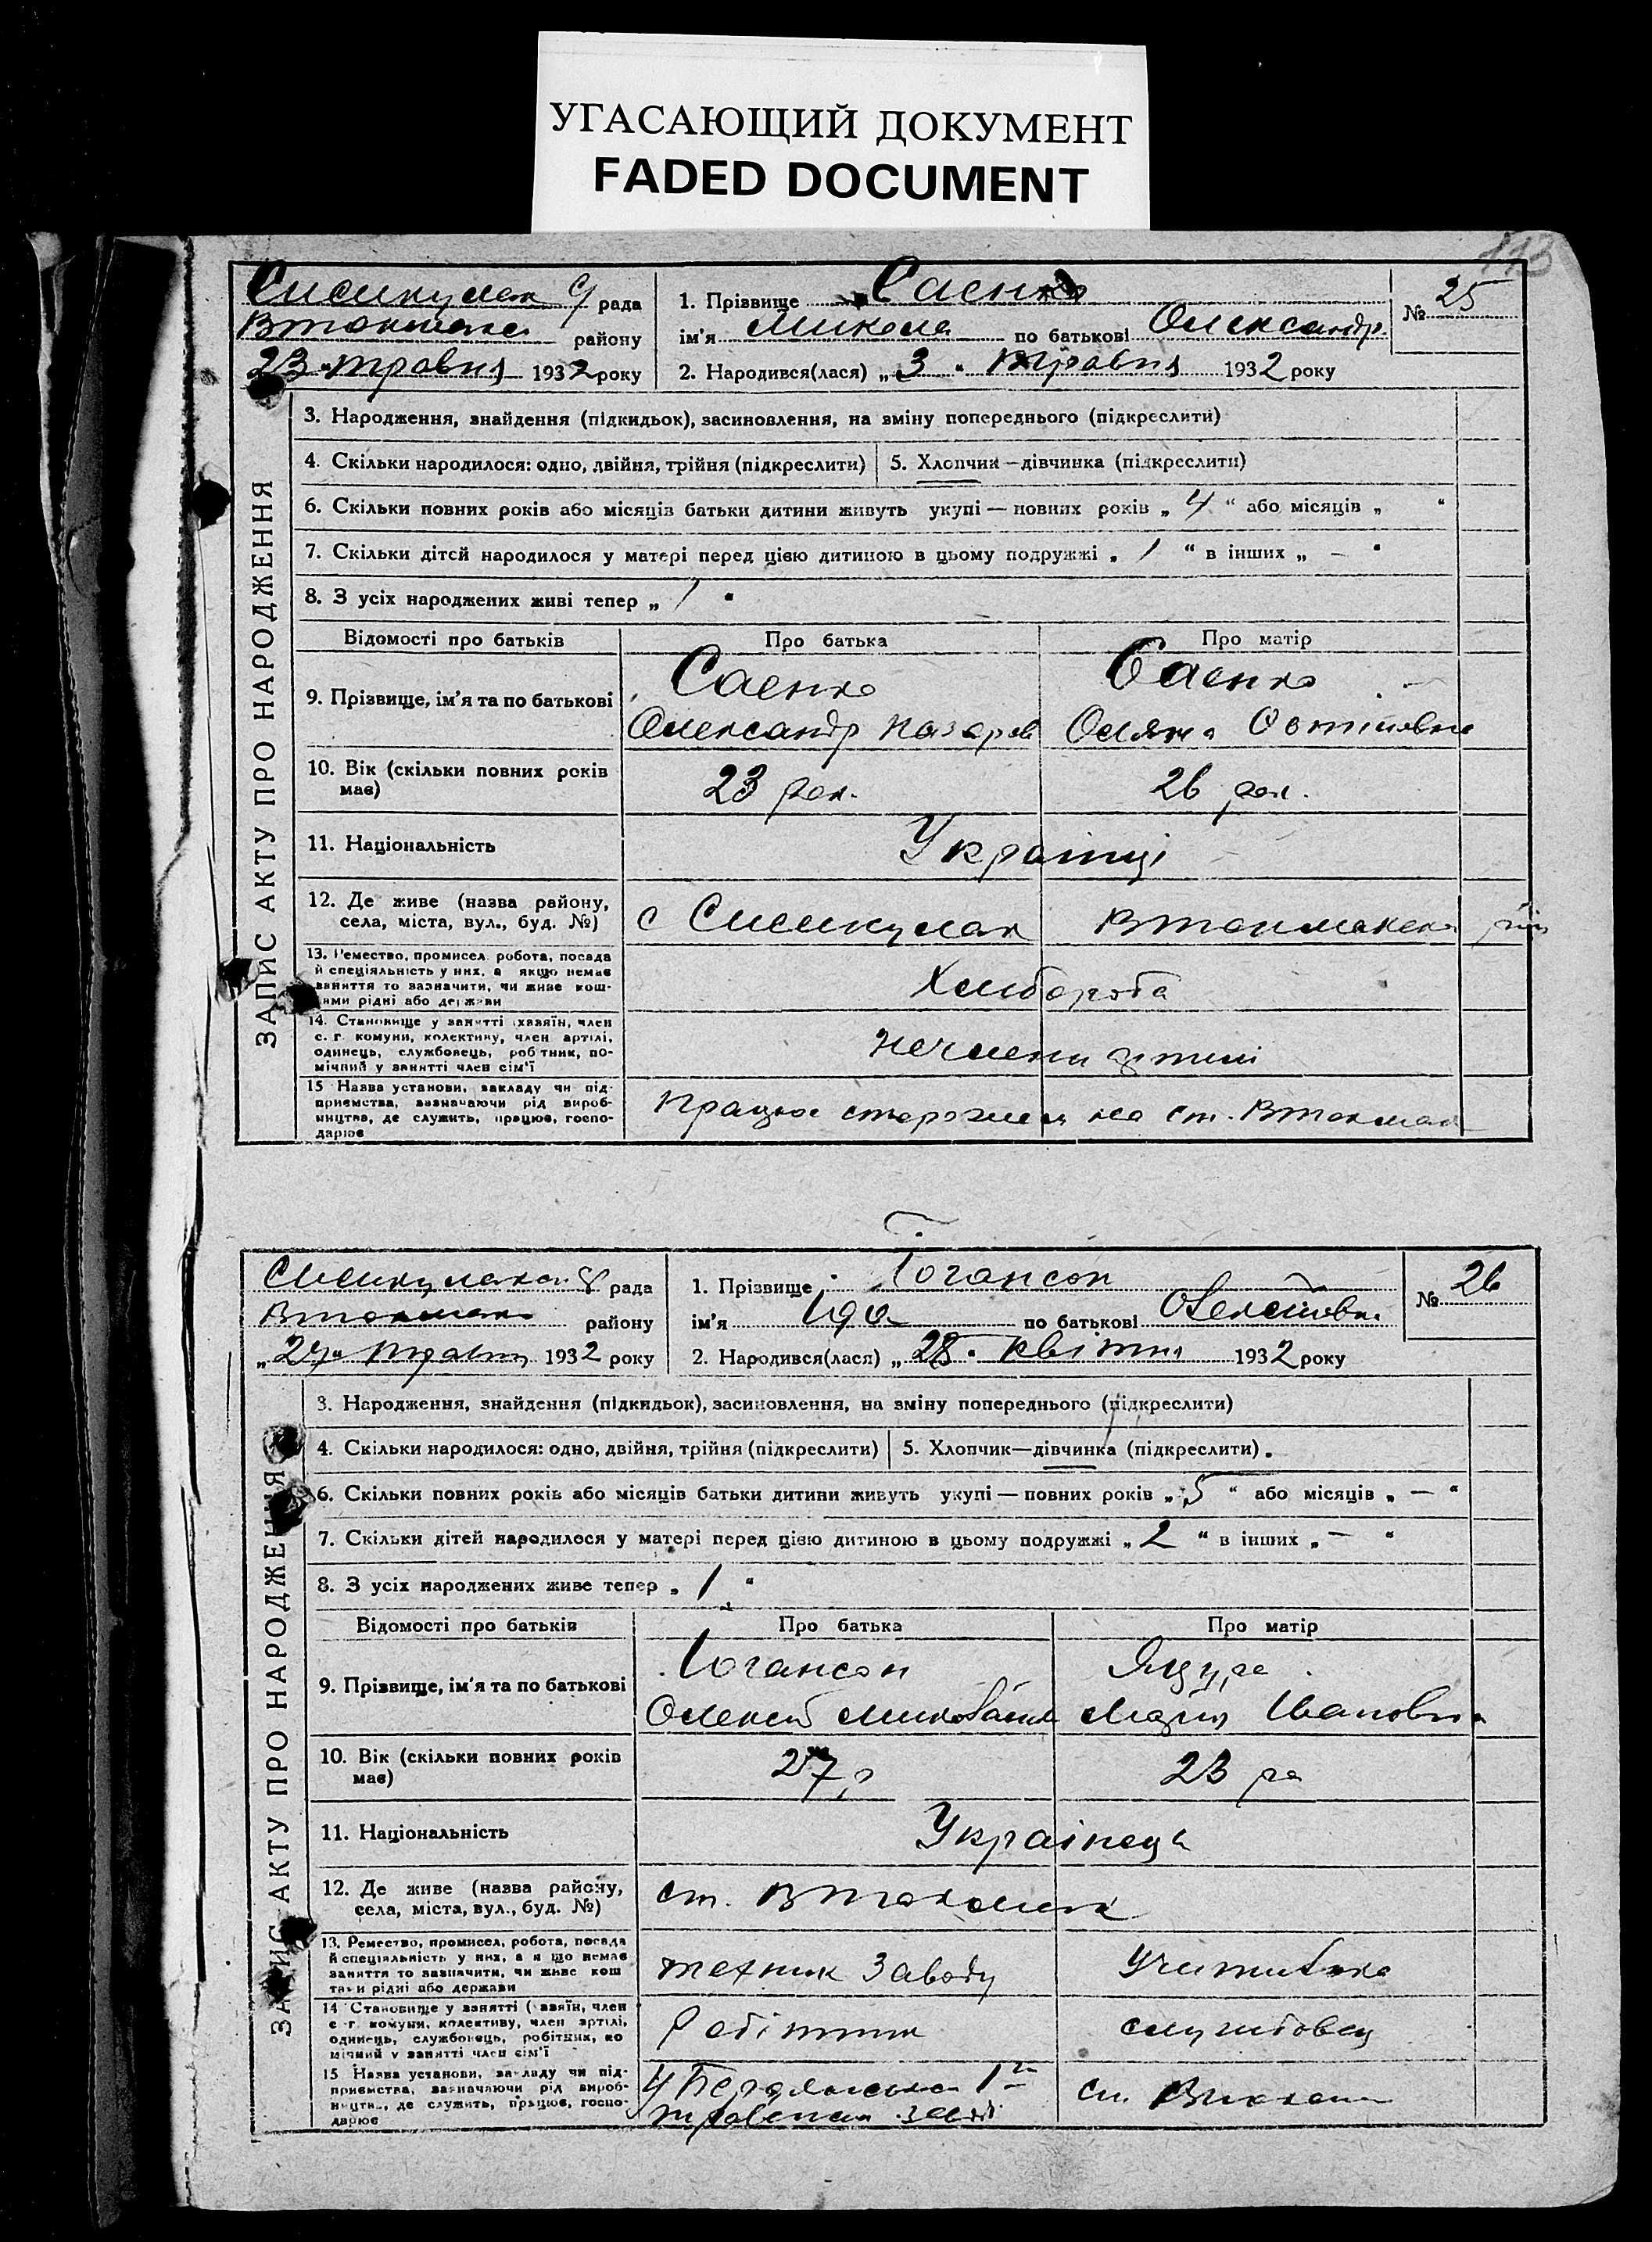 УГАСАЮЩИЙ ДОКУМЕНТ
FADED DOCUMENT
113
рада
району
23 травня 1932 року
1. Прізвище Саенко
ім'я Микола по батькові Олександр.
2. Народився(лася) „3“ травня 1932 року
№ 25
ЗАПИС АКТУ ПРО НАРОДЖЕННЯ
3. Народження, знайдення (підкидьок), засиновлення, на зміну попереднього (підкреслити)
4. Скільки народилося: одно, двійня, трійня (підкреслити) 5. Хлопчик—дівчинка (підкреслити)
6. Скільки повних років або місяців батьки дитини живуть укупі — повних років „4“ або місяців „ “
7. Скільки дітей народилося у матері перед цією дитиною в цьому подружжі „1“ в інших „—“
8. З усіх народжених живі тепер „1“
Відомості про батьків Про батька Про матір
9. Прізвище, ім'я та по батькові
Саенко Саенко
Олександр Назаров Оляна
10. Вік (скільки повних років має)
23 рок. 26 рок.
11. Національність
Українці
12. Де живе (назва району, села, міста, вул., буд. №)
с
13. Ремество, промисел, робота, посада й спеціяльність у них, а якщо немає заняття то зазначити, чи живе коштами рідні або держави
Хлібороба
14. Становище у занятті (хазяїн, член с. г. комуни, колективу, член артілі, одинець, службовець, робітник, помічний у занятті член сім'ї
нечлени артілі
15 Назва установи, закладу чи підприємства, зазначаючи рід виробництва, де служить, працює, господарює
Працює сторожем на ст. Втокмак
рада
району
„24“ травня 1932 року
1. Прізвище Іогансон
ім'я Іда по батькові
2. Народився(лася) „28“ квітня 1932 року
№ 26
ЗАПИС АКТУ ПРО НАРОДЖЕННЯ
3. Народження, знайдення (підкидьок), засиновлення, на зміну попереднього (підкреслити)
4. Скільки народилося: одно, двійня, трійня (підкреслити) 5. Хлопчик—дівчинка (підкреслити).
6. Скільки повних років або місяців батьки дитини живуть укупі — повних років „5“ або місяців „—“
7. Скільки дітей народилося у матері перед цією дитиною в цьому подружжі „2“ в інших „—“
8. З усіх народжених живе тепер „1“
Відомості про батьків Про батька Про матір
9. Прізвище, ім'я та по батькові
Іогансон
Олексій Марія Івановна
10. Вік (скільки повних років має)
27 р 23 ро
11. Національність
Українець
12. Де живе (назва району, села, міста, вул., буд. №)
ст. Втокмак
13. Ремество, промисел, робота, посада й спеціяльність у них, а якщо немає заняття то зазначити, чи живе коштами рідні або держави
технік заводу учителька
14 Становище у занятті (хазяїн, член с г. комуни, колективу, член артілі, одинець, службовець, робітник, помічний у занятті член сім'ї
Робітник службовец
15 Назва установи, закладу чи підприємства, зазначаючи рід виробництва, де служить, працює, господарює
У Бердянська 1го
завод
ст.